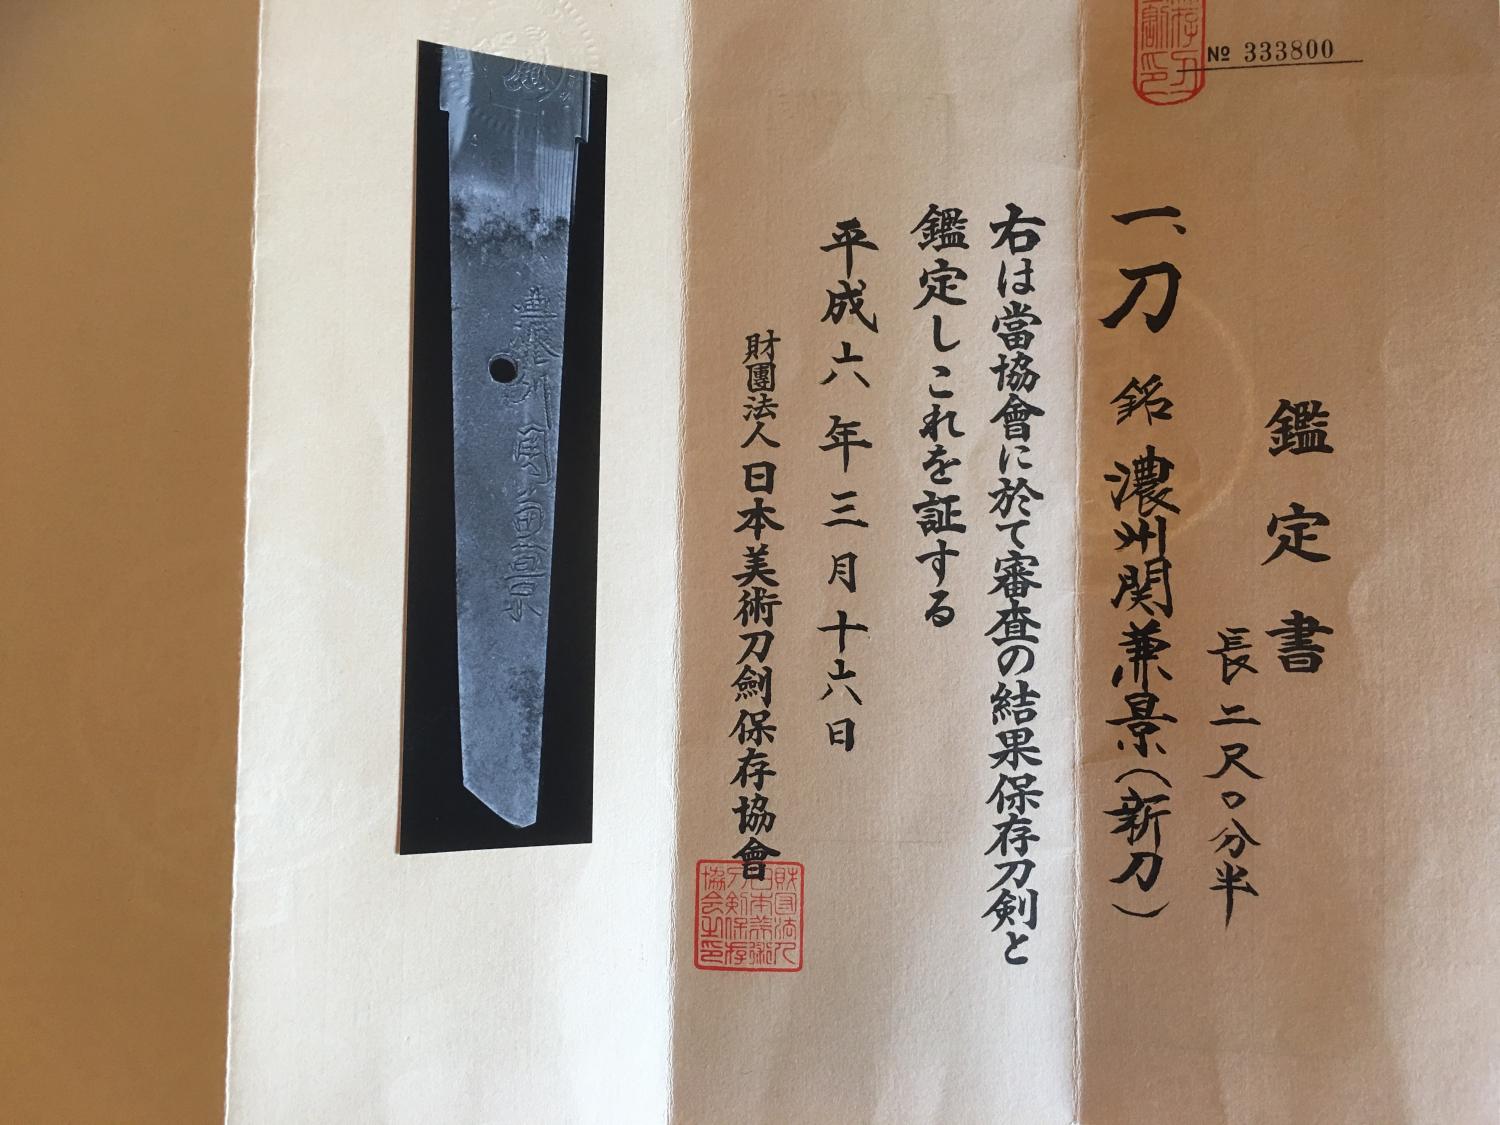 № 333800
鑑定書
長二尺〇分半
一、刀 銘 濃州関兼景(新刀)
右は當協會に於て審査の結果保存刀剣と
鑑定しこれを証する
平成六年三月十六日
財團法人日本美術刀剣保存協會
財団法人
日本美術
刀剣保存
協会之印
濃州関兼景